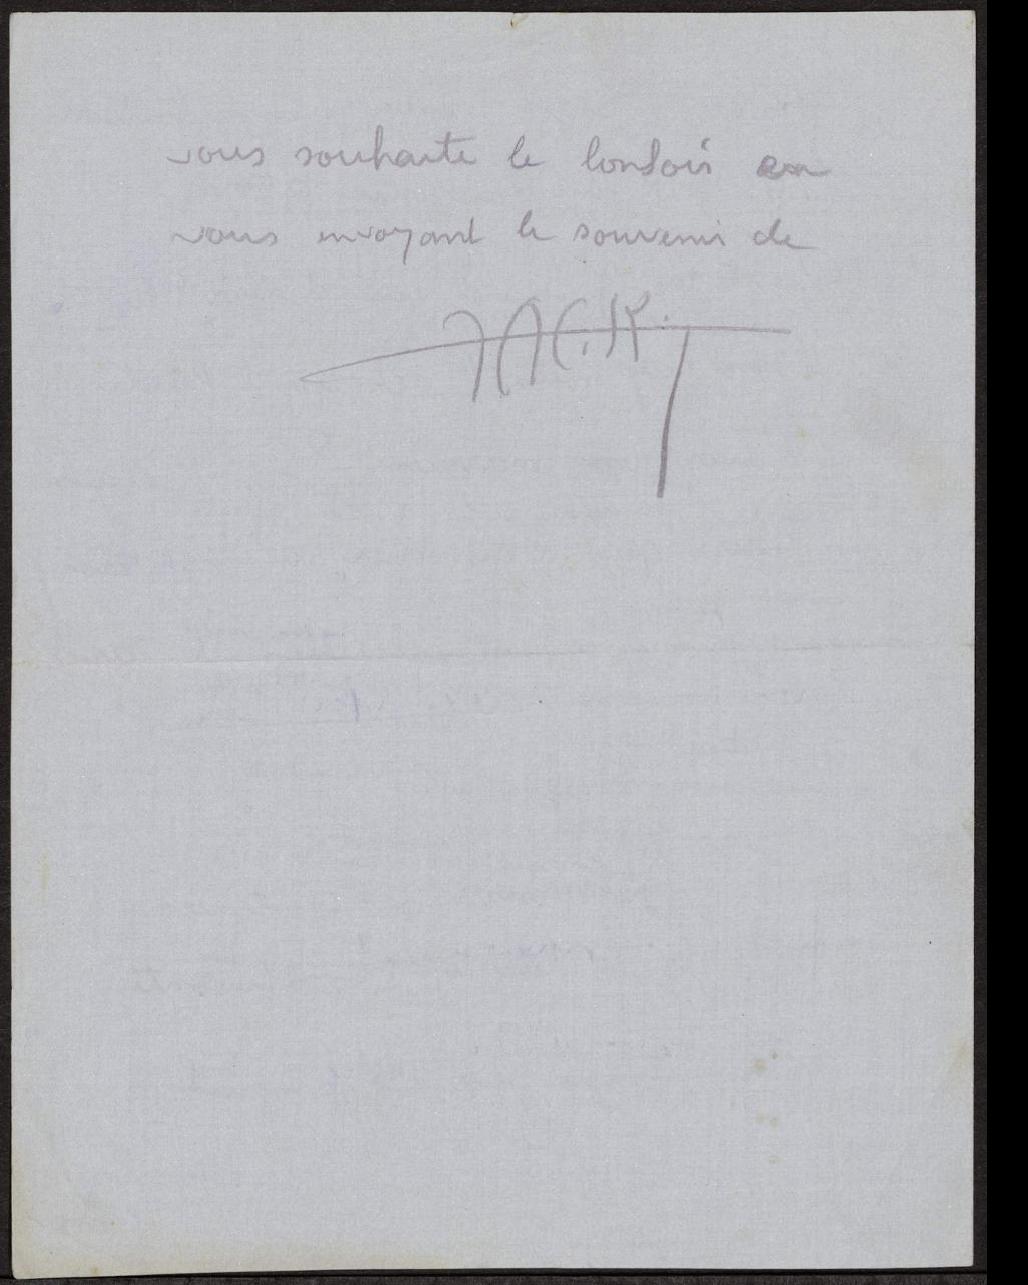 vous souhaite le bonsoir en
vous envoyant le souvenir de
JACK.